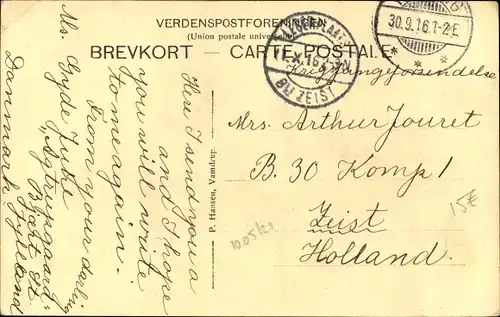 VERDENSPOSTFORENINGEN
(Union postale universelle)
BREVKORT — CARTE POSTALE
Krigsfangeforsendelse
30.9.16.1-2E
LEGERPLAATS
BIJ ZEIST
Mrs. Arthur Jouret
B. 30 Komp 1
Zeist
Holland.
15€
10.05/21
P. Hansen, Vamdrup.
Here I send you a
card I hope
you will write
to me again.
From your darling
Ms. Gyde Juhe
"Agtrupgaard"
Bjært St.
Danmark Jylland